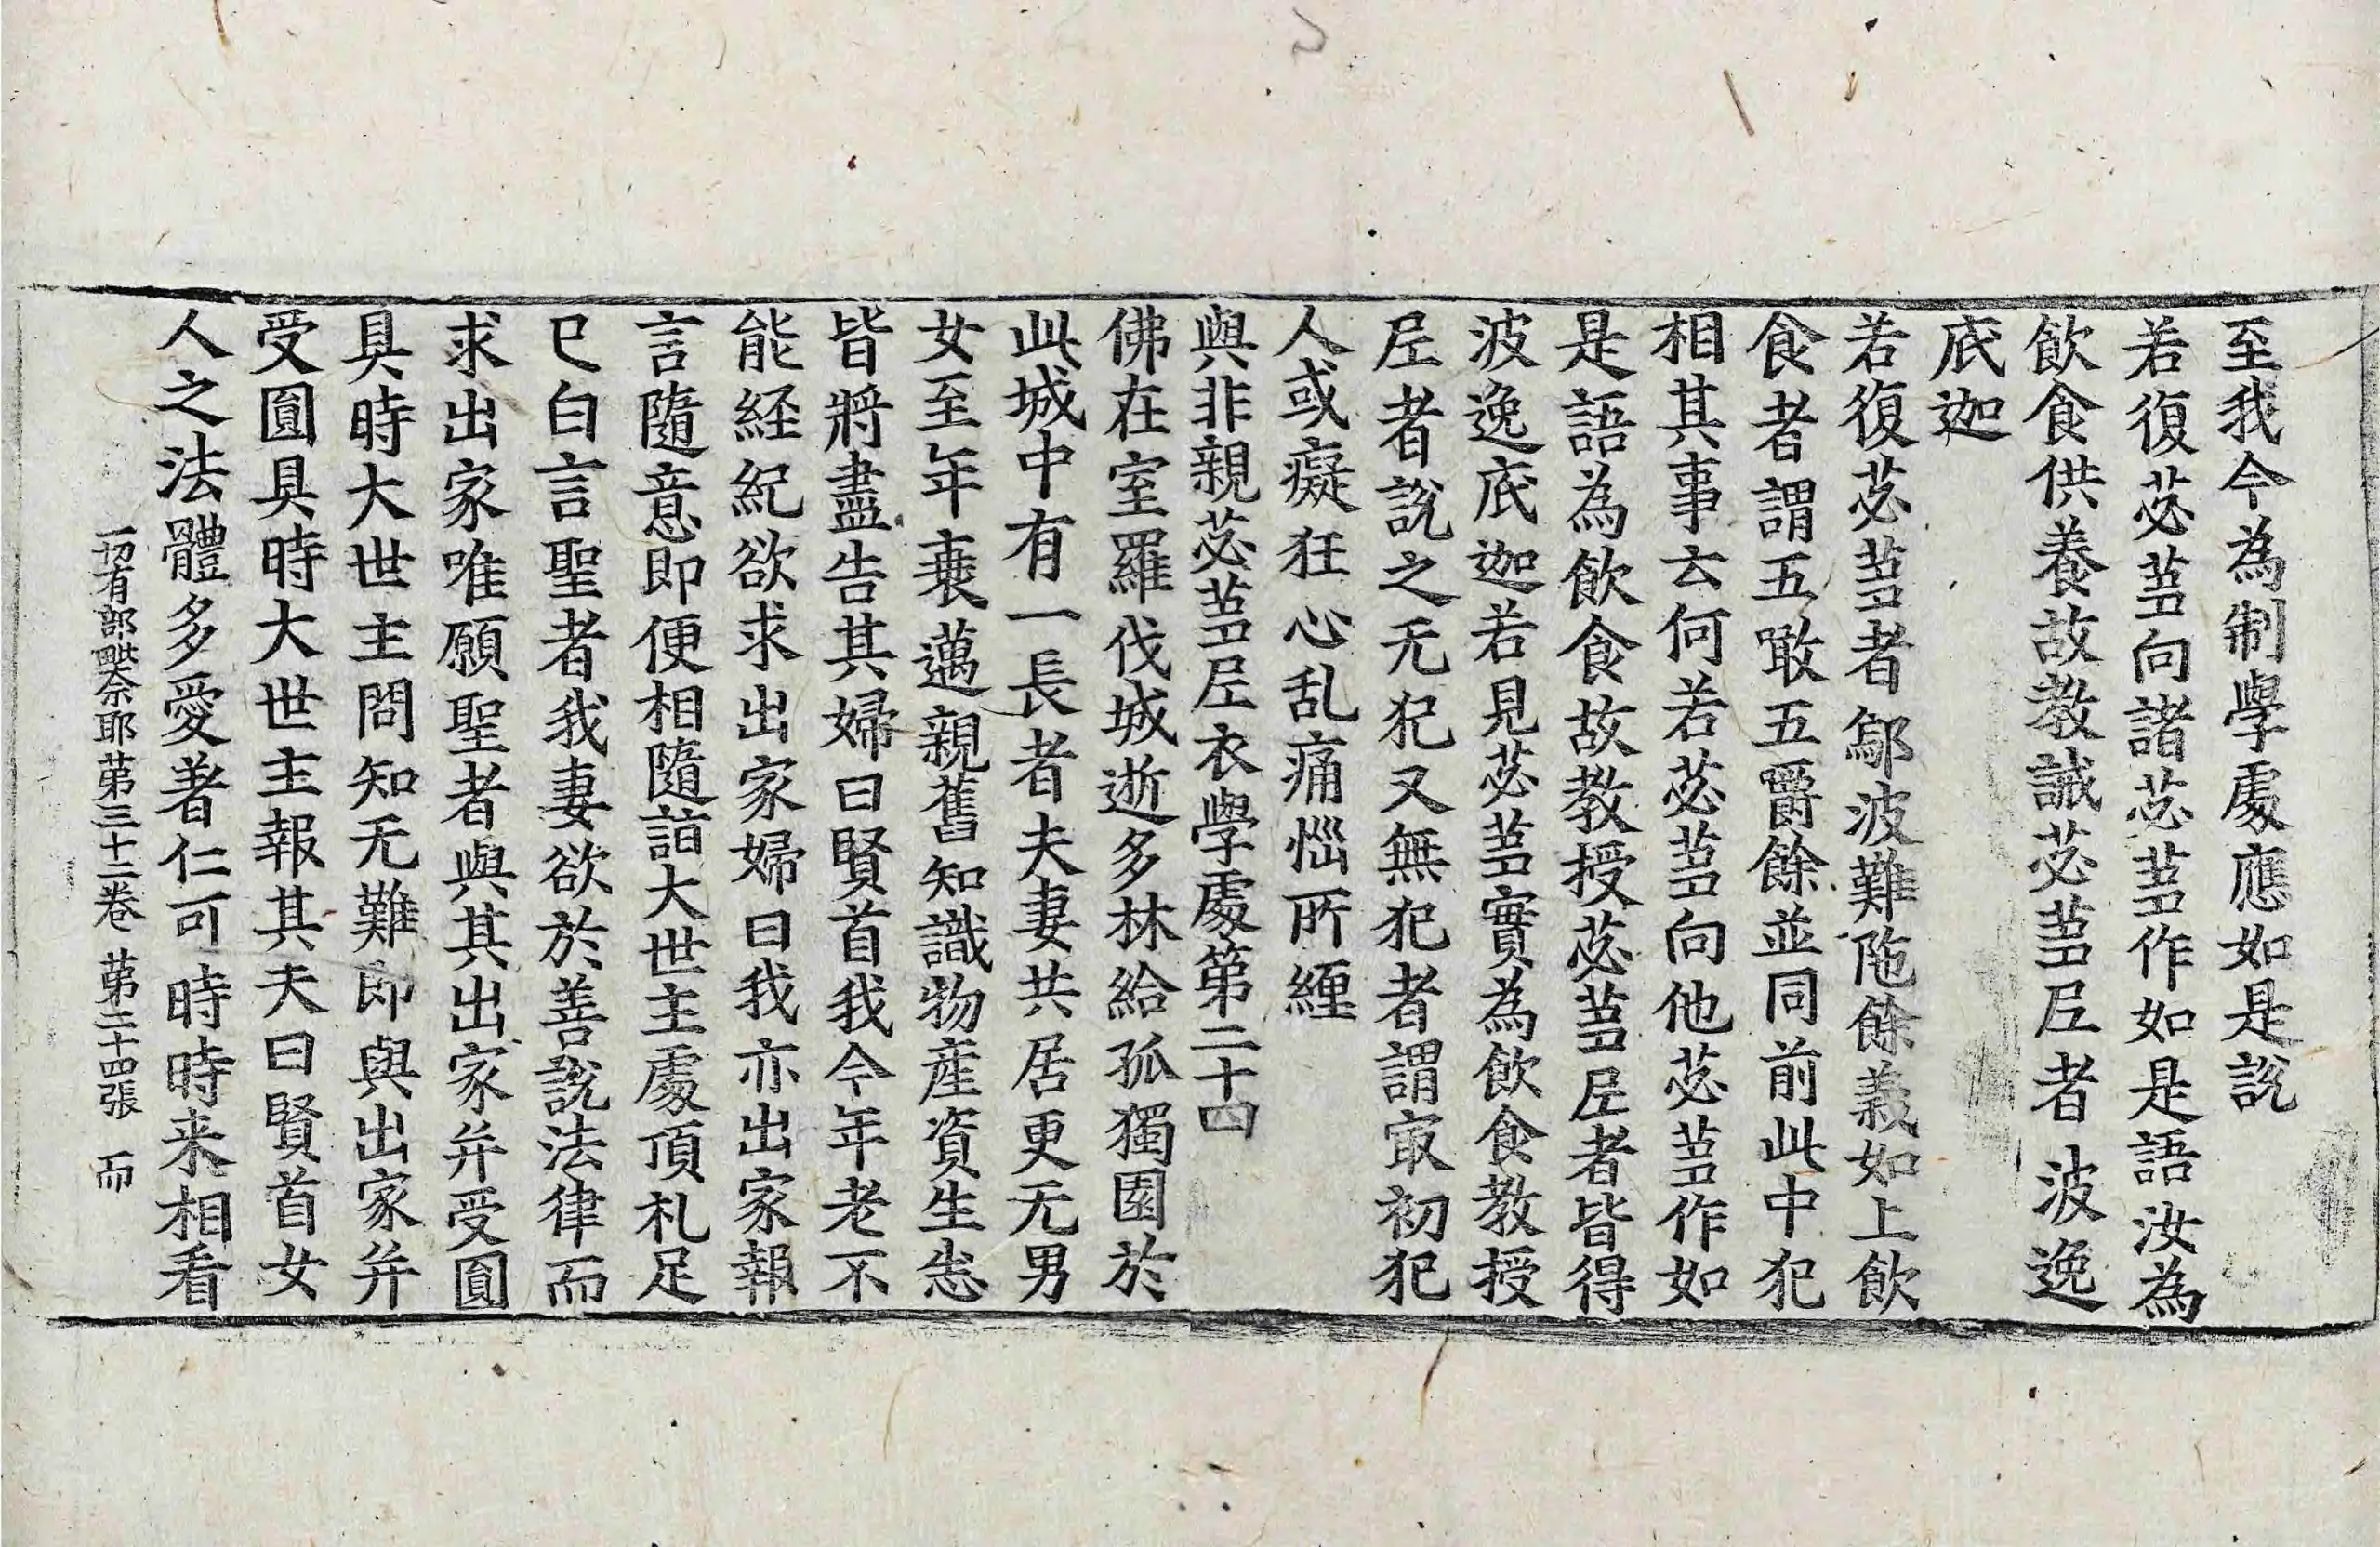 至我今為制學處應如是說
若復苾蒭向諸苾蒭作如是語汝為
飲食供養故教誡苾蒭尼者波逸
底迦
若復苾蒭者鄔波難陁餘義如上飲
食者謂五噉五嚼餘並同前此中犯
相其事云何若苾蒭向他苾蒭作如
是語為飲食故教授苾蒭尼者皆得
波逸底迦若見苾蒭實為飲食教授
尼者說之无犯又無犯者謂㝡初犯
人或癡狂心乱痛惱所纏
與非親苾蒭尼衣學處第二十四
佛在室羅伐城逝多林給孤獨園於
此城中有一長者夫妻共居更无男
女至年衰邁親舊知識物產資生悉
皆將盡告其婦曰賢首我今年老不
能經紀欲求出家婦曰我亦出家報
言隨意即便相隨詣大世主處頂礼足
已白言聖者我妻欲於善說法律而
求出家唯願聖者與其出家并受圓
具時大世主問知无難即與出家并
受圓具時大世主報其夫曰賢首女
人之法體多愛著仁可時時来相看
一切有部毗奈耶第三十二卷 第二十四張 而